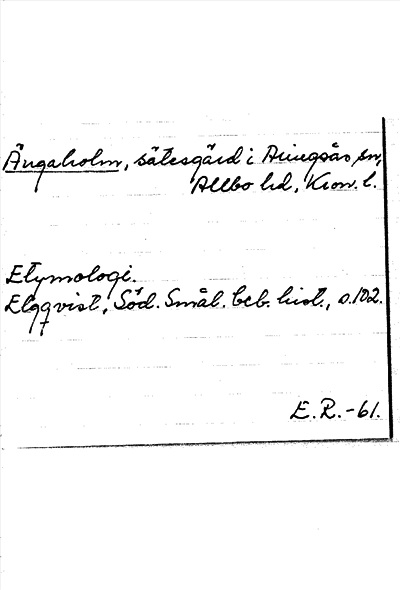 Ängaholm, sätesgård i Aringsås sn,
Allbo hd, Kron. l.
Etymologi.
Elgqvist, Söd. Smål. beb. hist., s. 102.
E. R. -61.